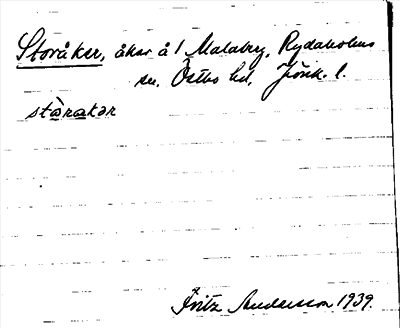 Storåker, åker å 1 Malabry, Rydaholms
sn. Östbo hd, Jönk. l.
stòrakər
Fritz Andersson 1939.